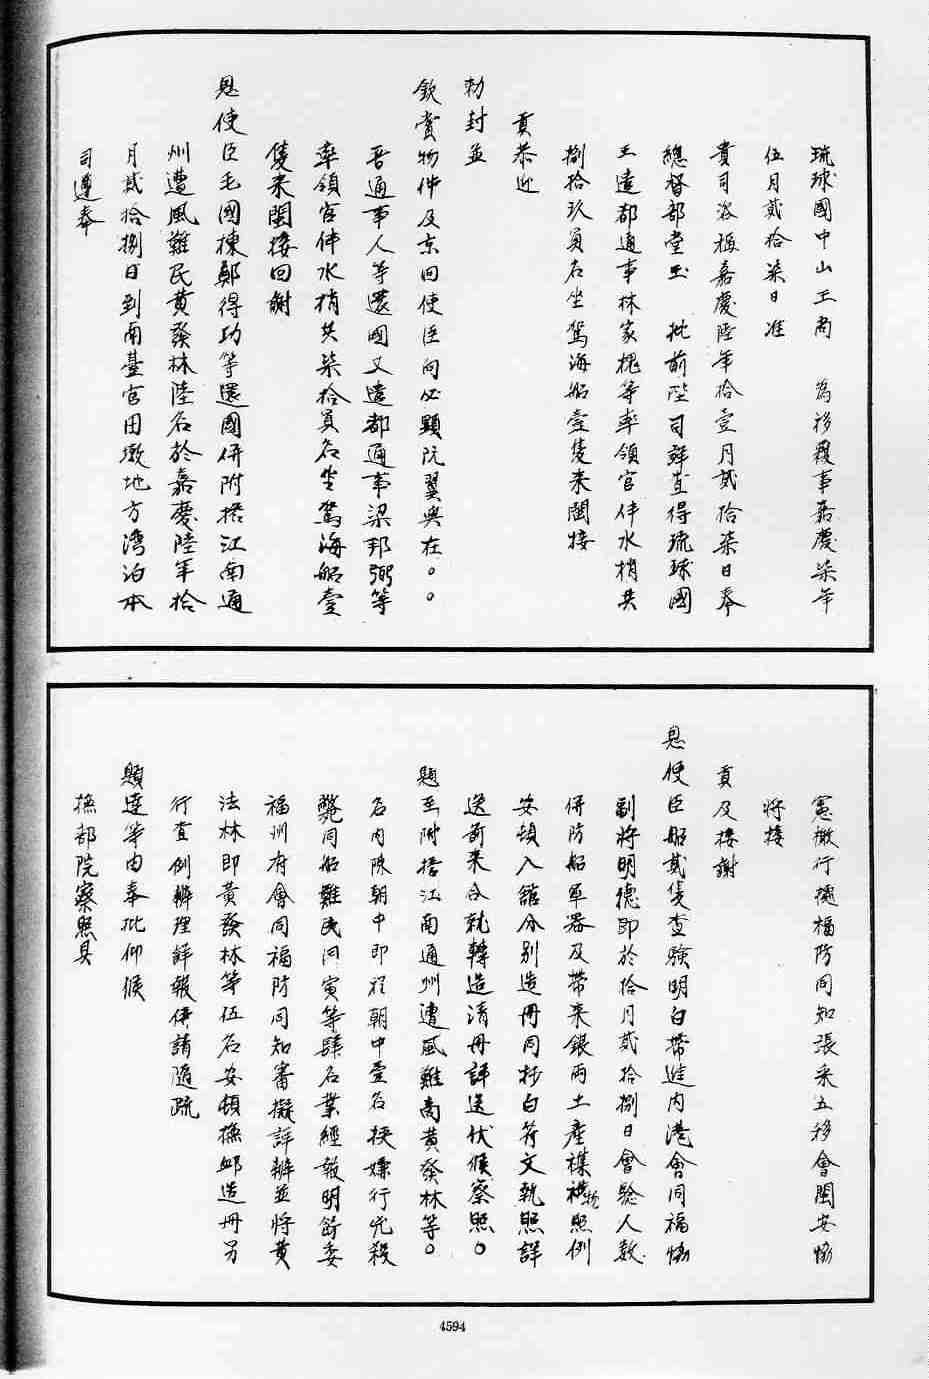 琉球國中山王尚　為移覆事嘉慶柒年
伍月貳拾柒日准
貴司咨稱嘉慶陸年拾壹月貳拾柒日奉
總督部堂玉　批前陞司詳查得琉球國
王遣都通事林家槐等率領官伴水梢共
捌拾玖員名坐駕海船壹隻來閩接
貢恭迎
勅封並
欽賞物件及京回使臣向必顯阮翼與在。。
吾通事人等還國又遣都通事梁邦弼等
率領官伴水梢共柒拾員名坐駕海船壹
隻來閩接回謝
恩使臣毛國棟鄭得功等還國併附搭江南通
州遭風難民黃發林陸名於嘉慶陸年拾
月貳拾捌日到南臺官田墩地方灣泊本
司遵奉
憲檄行據福防同知張采五移會閩安協
將接
貢及接謝
恩使臣船貳隻查驗明白帶進內港會同福協
副將明德即於拾月貳拾捌日會驗人數
併防船軍器及帶來銀兩土產襍物照例
安頓入館分別造冊同抄白符文執照詳
送前來合就轉造清冊詳送伏候察照。
題至附搭江南通州遭風難商黃發林等。
名內陳朝中即程朝中壹名挾嫌行兇殺
斃同船難民冋寅等肆名業經報明飭委
福州府會同福防同知審擬詳辦並將黃
法林即黃發林等伍名安頓撫卹造冊另
行查例辦理詳報併請隨疏
題達等由奉批仰候
撫部院察照具
4594